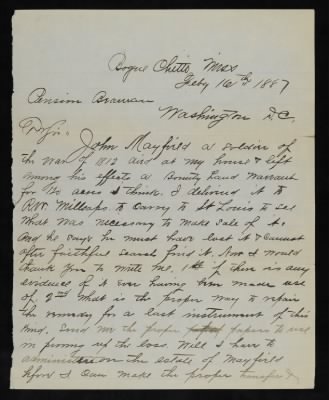 Bogue Chitto, Miss
Feby 16th 1887
Pension Beaurau
Washington D.C.
Dr Sir.
John Mayfield a soldier of
the war of 1812 died at my house & left
among his effects a Bounty Land Warrant
for 120 acres I think. I delivered it to
R.W. Millsaps to carry to St Louis to see
what was necessary to make sale of it.
And he says he must have lost it & cannot
after faithful search find it. Now I would
thank you to write me, 1st if there is any
evidence of it ever having been made use
of. 2nd What is the proper way to
the remedy for a lost instrument of this
kind. Send me the proper papers to use
in proving up the loss. Will I have to
administer on the estate of Mayfield
before I can make the proper transfer &c